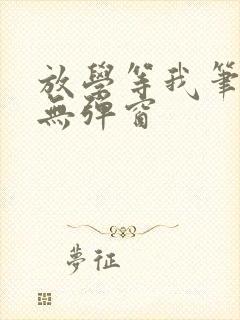 放學等我筆
無彈窗
夢征